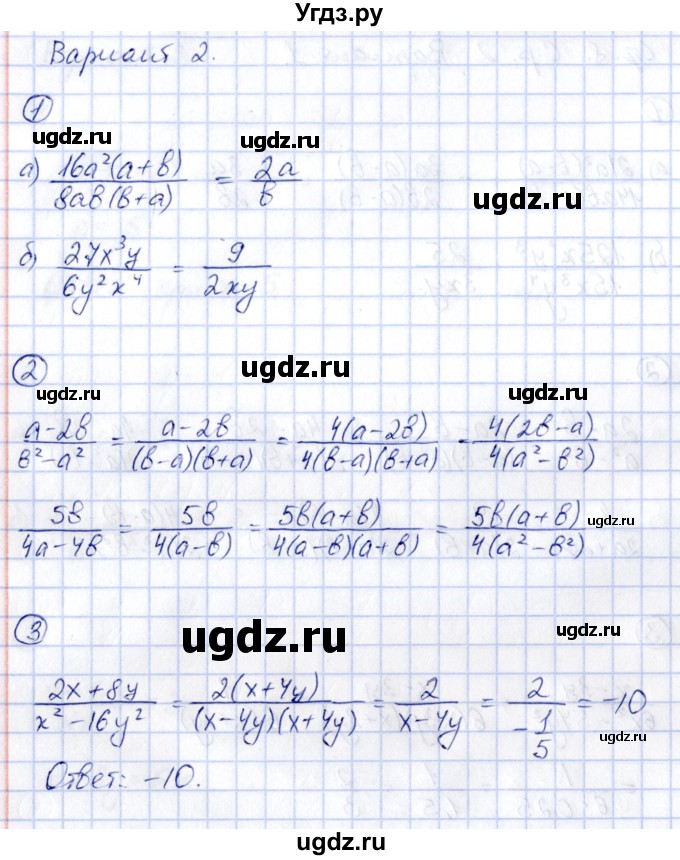 Угдз.ру
Вариант 2.
① ugdz.ru ugdz.ru
а) 16a²(a+b)/8ab(b+a) = 2a/b
ugdz.ru
б) 27x³y/6y²x⁴ = 9/2xy
② ugdz.ru ugdz.ru ugdz.ru
a-2b/b²-a² = a-2b/(b-a)(b+a) = 4(a-2b)/4(b-a)(b+a) = 4(2b-a)/4(a²-b²)
5b/4a-4b = 5b/4(a-b) = 5b(a+b)/4(a-b)(a+b) = 5b(a+b)/4(a²-b²)
ugdz.ru
③ ugdz.ru ugdz.ru
2x+8y/x²-16y² = 2(x+4y)/(x-4y)(x+4y) = 2/x-4y = 2/-1/5 = -10
ugdz.ru
Ответ: -10.
ugdz.ru